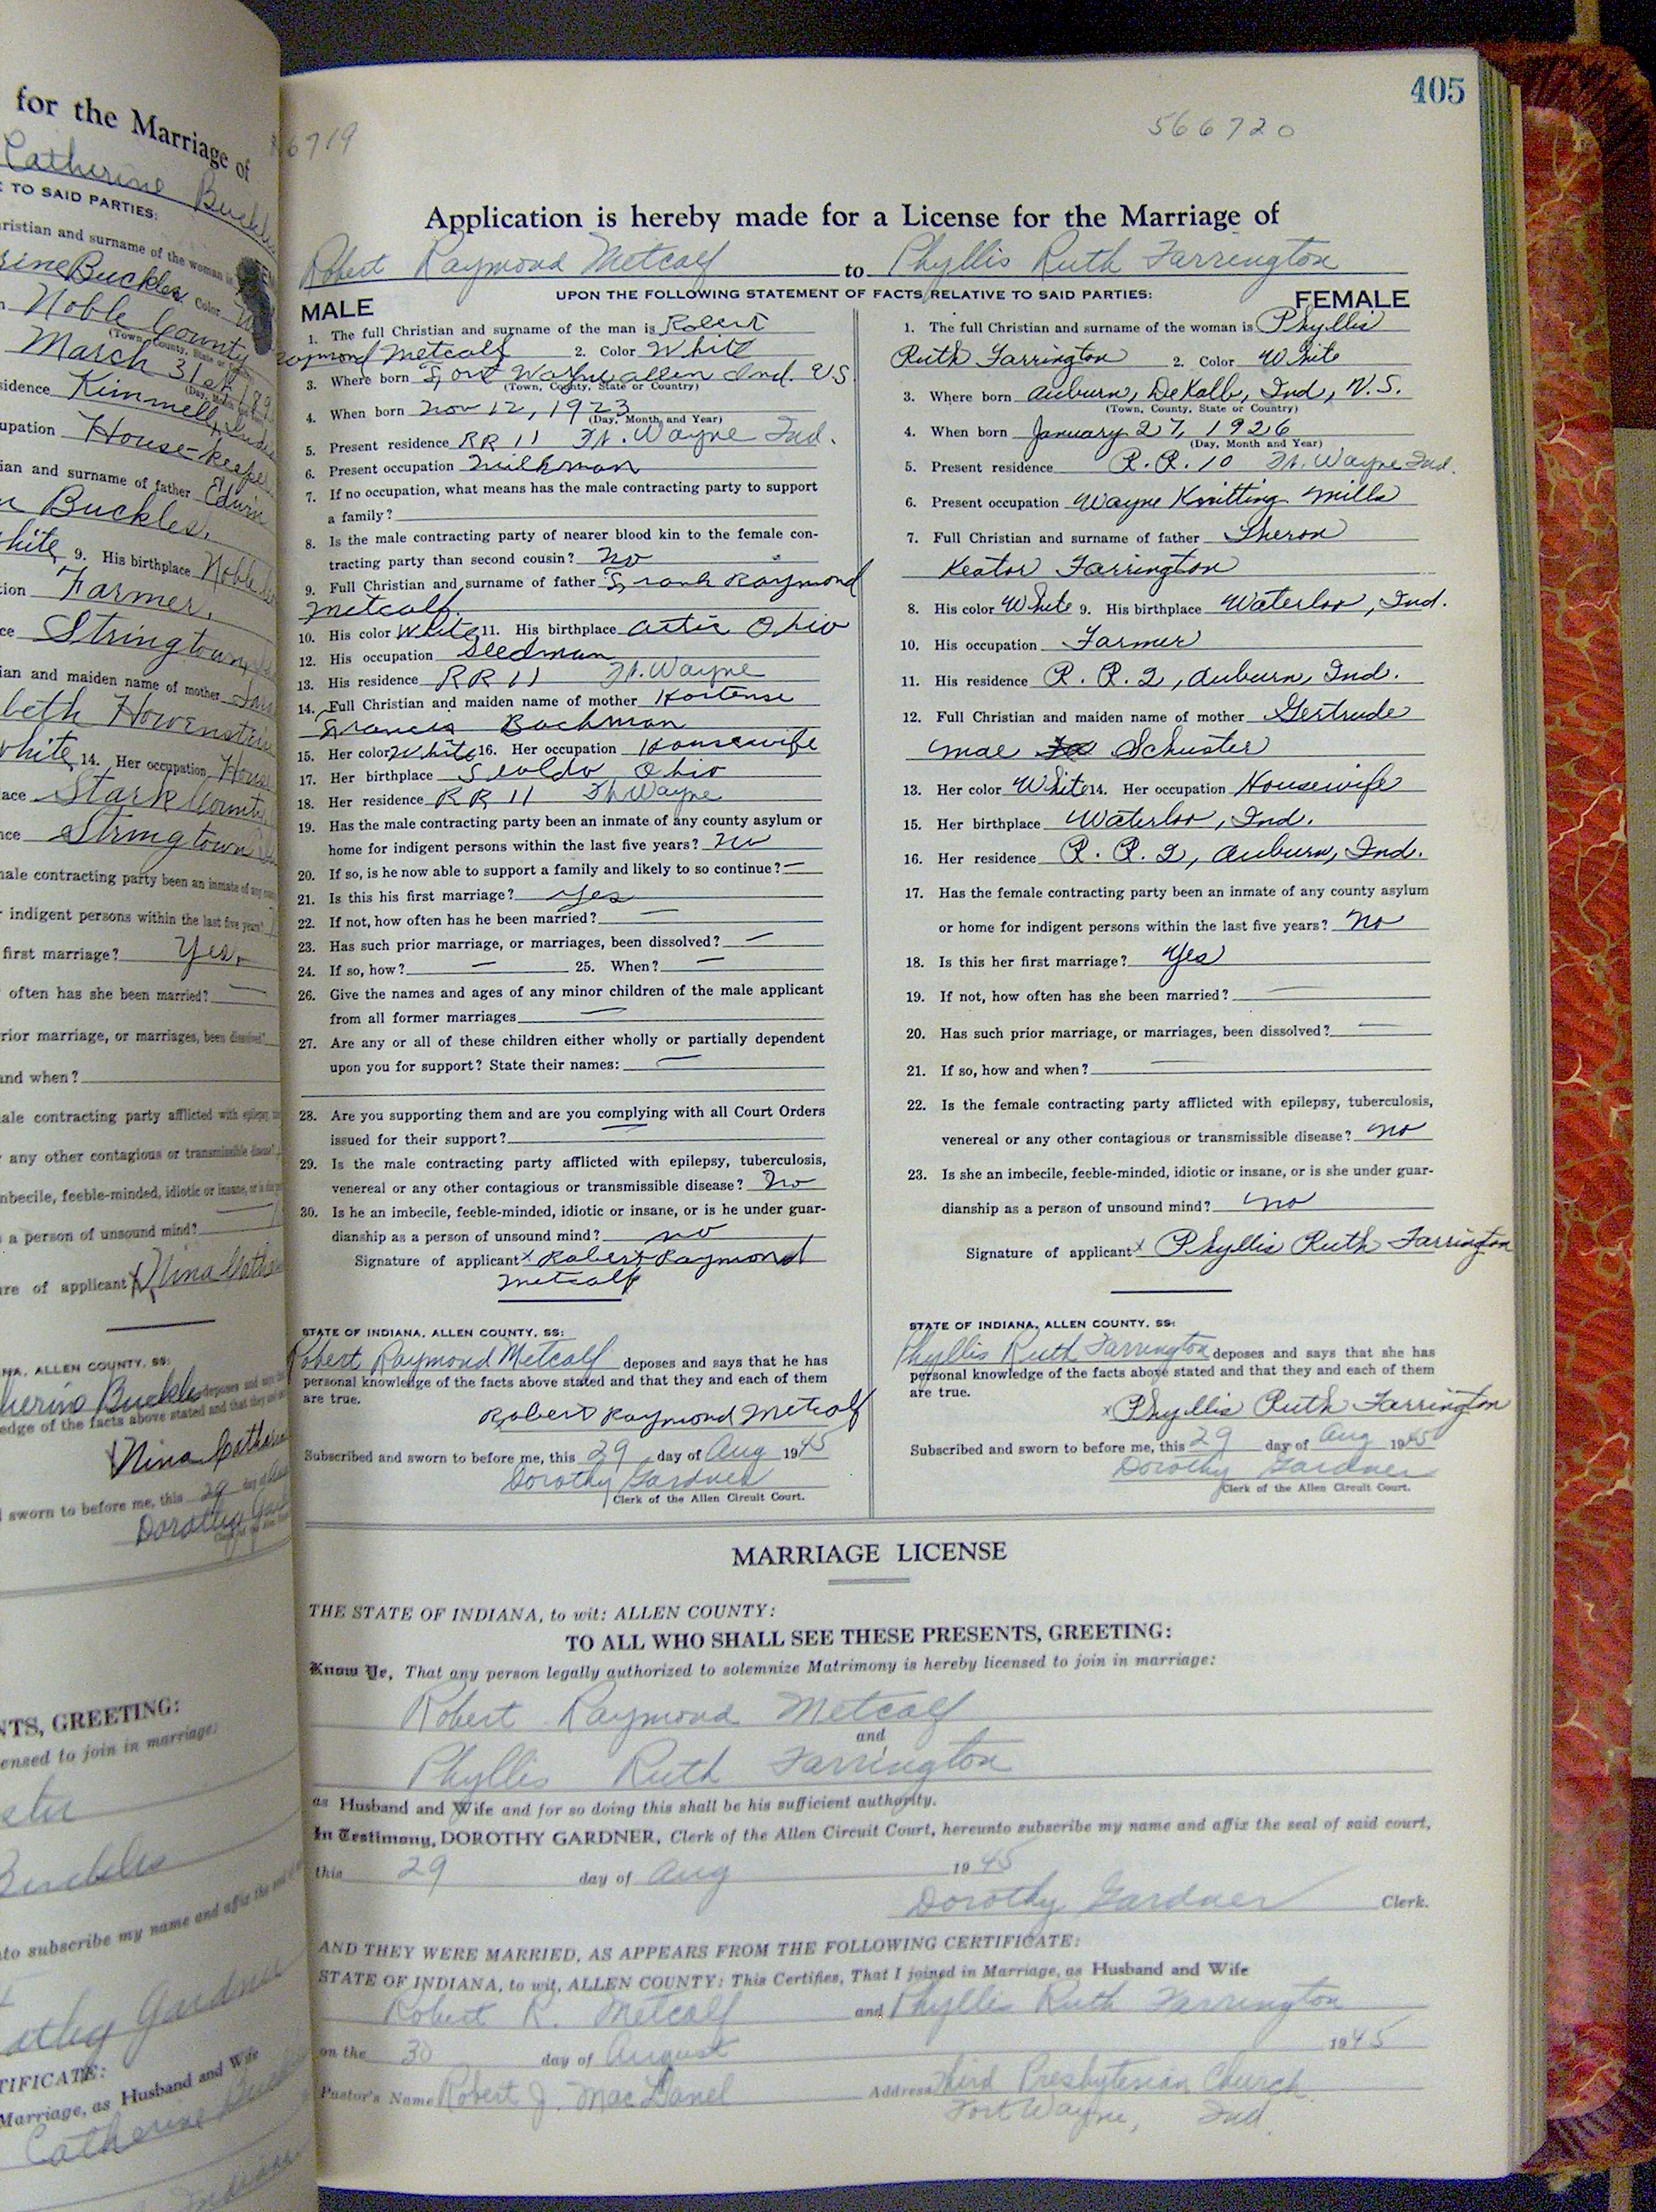 for the Marriage of
Catherine Buckles
TO SAID PARTIES:
Christian and surname of the woman is
Buckles Color
Noble County
(Town, County, State or
March 31st
residence Kimmell,
occupation House-keeper
ian and surname of father Edwin
Buckles.
white 9. His birthplace Noble
tion Farmer,
ce Stringtown
ian and maiden name of mother
beth Howenstein
white 14. Her occupation House
ace Stark County
nce Stringtown
male contracting party been an inmate of any
r indigent persons within the last five years?
first marriage? Yes.
often has she been married? —
rior marriage, or marriages, been dissolved?
and when?
male contracting party afflicted with epilepsy,
any other contagious or transmissible disease?
mbecile, feeble-minded, idiotic or insane, or is
a person of unsound mind?
ure of applicant Nina Cathe
NA, ALLEN COUNTY, SS:
herine Buckles deposes and says
edge of the facts above stated and that they
Nina Catherine
sworn to before me, this 29 day of
Dorothy Gard
NTS, GREETING:
censed to join in marriage:
Buckles
to subscribe my name and affix the
othy Gardner
TIFICATE:
Marriage, as Husband and Wife
Catherine Buckles
405
6719 566720
Application is hereby made for a License for the Marriage of
Robert Raymond Metcalf to Phyllis Ruth Farrington
UPON THE FOLLOWING STATEMENT OF FACTS RELATIVE TO SAID PARTIES:
MALE
1. The full Christian and surname of the man is Robert
Raymond Metcalf 2. Color White
3. Where born Fort Wayne Allen Ind. U.S.
(Town, County, State or Country)
4. When born Nov 12, 1923
(Day, Month and Year)
5. Present residence RR 11 Ft. Wayne Ind.
6. Present occupation Milkman
7. If no occupation, what means has the male contracting party to support
a family?
8. Is the male contracting party of nearer blood kin to the female con-
tracting party than second cousin? No
9. Full Christian and surname of father Frank Raymond
Metcalf.
10. His color White 11. His birthplace Ohio
12. His occupation Seedman
13. His residence RR 11 Ft. Wayne
14. Full Christian and maiden name of mother Hortense
Francis Bachman
15. Her color White 16. Her occupation Housewife
17. Her birthplace Ohio
18. Her residence RR 11 Ft. Wayne
19. Has the male contracting party been an inmate of any county asylum or
home for indigent persons within the last five years? No
20. If so, is he now able to support a family and likely to so continue? —
21. Is this his first marriage? Yes
22. If not, how often has he been married? —
23. Has such prior marriage, or marriages, been dissolved? —
24. If so, how? — 25. When? —
26. Give the names and ages of any minor children of the male applicant
from all former marriages —
27. Are any or all of these children either wholly or partially dependent
upon you for support? State their names: —
28. Are you supporting them and are you complying with all Court Orders
issued for their support? —
29. Is the male contracting party afflicted with epilepsy, tuberculosis,
venereal or any other contagious or transmissible disease? No
30. Is he an imbecile, feeble-minded, idiotic or insane, or is he under guar-
dianship as a person of unsound mind? No
Signature of applicant x Robert Raymond
Metcalf
STATE OF INDIANA, ALLEN COUNTY, SS:
Robert Raymond Metcalf deposes and says that he has
personal knowledge of the facts above stated and that they and each of them
are true.
Robert Raymond Metcalf
Subscribed and sworn to before me, this 29 day of Aug 1945
Dorothy Gardner
Clerk of the Allen Circuit Court.
FEMALE
1. The full Christian and surname of the woman is Phyllis
Ruth Farrington 2. Color White
3. Where born Auburn, DeKalb, Ind., U.S.
(Town, County, State or Country)
4. When born January 27, 1926
(Day, Month and Year)
5. Present residence R. R. 10 Ft. Wayne Ind.
6. Present occupation Wayne Knitting Mills
7. Full Christian and surname of father Theron
Keator Farrington
8. His color White 9. His birthplace Waterloo, Ind.
10. His occupation Farmer
11. His residence R. R. 2, Auburn, Ind.
12. Full Christian and maiden name of mother Gertrude
Mae Schuster
13. Her color White 14. Her occupation Housewife
15. Her birthplace Waterloo, Ind.
16. Her residence R. R. 2, Auburn, Ind.
17. Has the female contracting party been an inmate of any county asylum
or home for indigent persons within the last five years? No
18. Is this her first marriage? Yes
19. If not, how often has she been married? —
20. Has such prior marriage, or marriages, been dissolved? —
21. If so, how and when? —
22. Is the female contracting party afflicted with epilepsy, tuberculosis,
venereal or any other contagious or transmissible disease? No
23. Is she an imbecile, feeble-minded, idiotic or insane, or is she under guar-
dianship as a person of unsound mind? No
Signature of applicant x Phyllis Ruth Farrington
STATE OF INDIANA, ALLEN COUNTY, SS:
Phyllis Ruth Farrington deposes and says that she has
personal knowledge of the facts above stated and that they and each of them
are true.
x Phyllis Ruth Farrington
Subscribed and sworn to before me, this 29 day of Aug 1945
Dorothy Gardner
Clerk of the Allen Circuit Court.
MARRIAGE LICENSE
THE STATE OF INDIANA, to wit: ALLEN COUNTY:
TO ALL WHO SHALL SEE THESE PRESENTS, GREETING:
Know Ye, That any person legally authorized to solemnize Matrimony is hereby licensed to join in marriage:
Robert Raymond Metcalf
and
Phyllis Ruth Farrington
as Husband and Wife and for so doing this shall be his sufficient authority.
In Testimony, DOROTHY GARDNER, Clerk of the Allen Circuit Court, hereunto subscribe my name and affix the seal of said court,
this 29 day of Aug 1945
Dorothy Gardner Clerk.
AND THEY WERE MARRIED, AS APPEARS FROM THE FOLLOWING CERTIFICATE:
STATE OF INDIANA, to wit, ALLEN COUNTY: This Certifies, That I joined in Marriage, as Husband and Wife
Robert R. Metcalf and Phyllis Ruth Farrington
on the 30 day of August 1945
Pastor's Name Robert J. MacDanel Address Third Presbyterian Church
Fort Wayne, Ind.